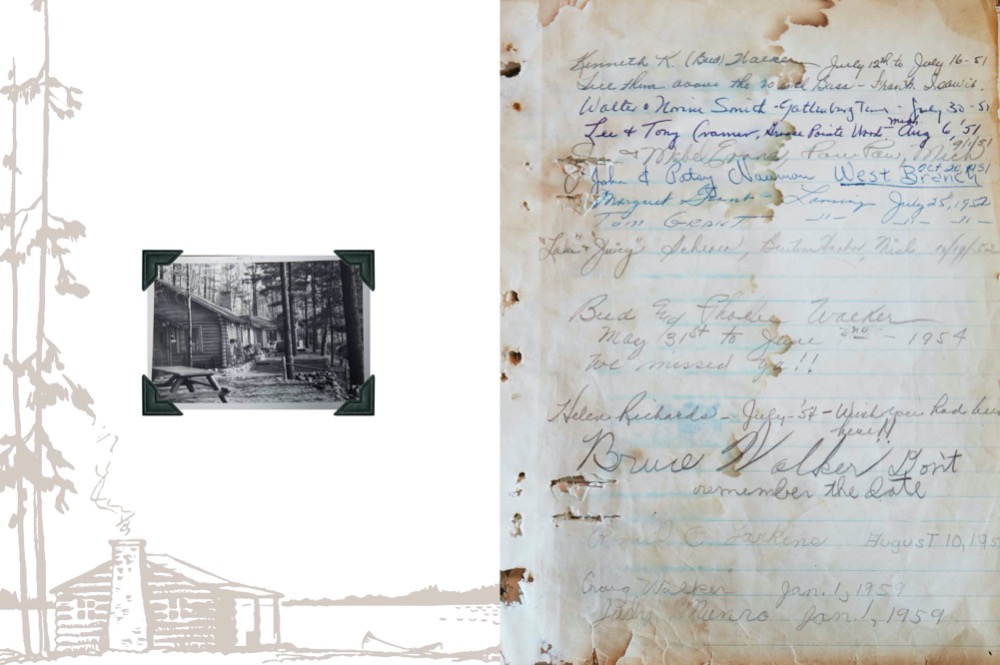 Kenneth K. (Bud) Walker July 12th to July 16-51
See them above the Bass - Frank
Walter & Norine Smith - Gatlinburg Tenn - July 30-51
Lee & Tony Cramer, Grosse Pointe Woods Mich Aug 6, '51
& Mabel Evans, Paw Paw, Mich 9/1/51
John & Patsy Nauman West Branch Oct 20, 1951
Margaret Grant - Lansing July 25, 1952
Tom GRANT -"- -"- -"-
& "Juicy" Scherer, Benton Harbor, Mich
Bud & Phoebe Walker
May 31st to June 2nd - 1954
We missed ya!!
Helen Richards - July-'54 - Wish you had been
here!!
Bruce Walker Don't
remember the date
C. Perkins August 10, 195
Craig Walker Jan. 1, 1959
Judy Munro Jan. 1, 1959